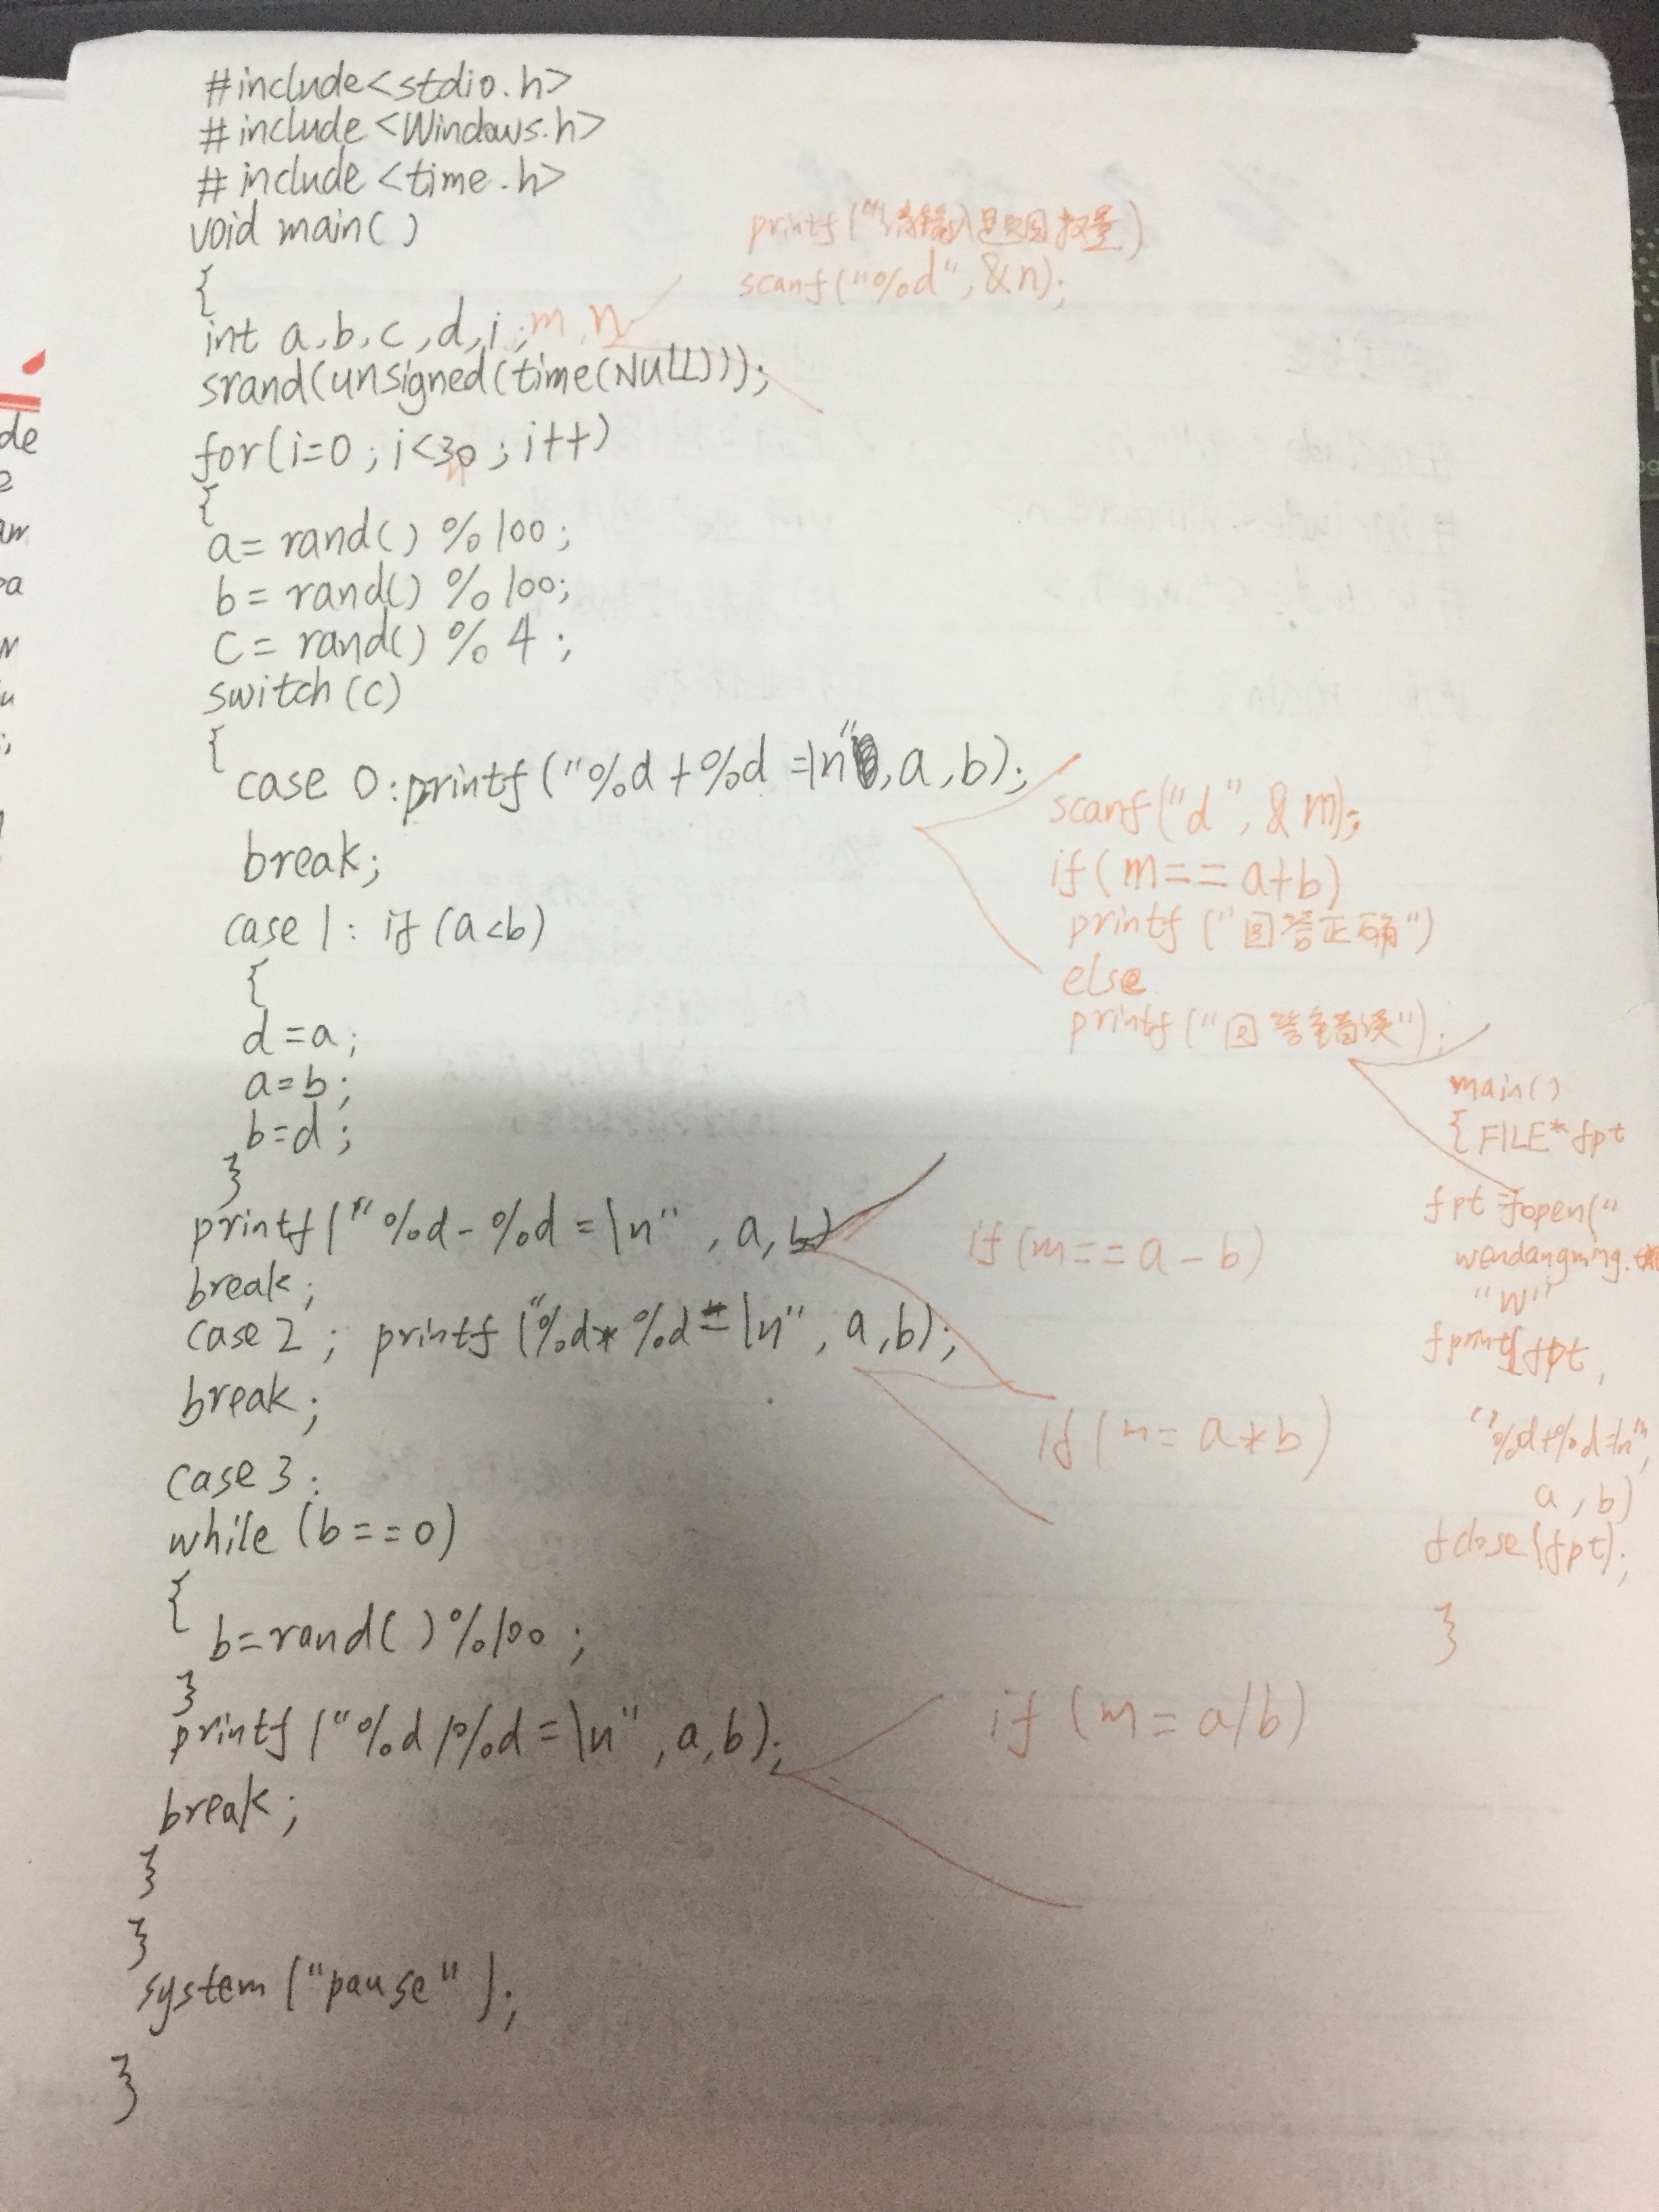 #include<stdio.h>
#include<Windows.h>
#include<time.h>
void main()
{
int a,b,c,d,i;m,n
srand(unsigned(time(NULL)));
for(i=0;i<30;i++)
n
{
a=rand()%100;
b=rand()%100;
c=rand()%4;
switch(c)
{
case 0:printf("%d+%d=\n",a,b);
break;
case 1: if(a<b)
{
d=a;
a=b;
b=d;
}
printf("%d-%d=\n",a,b)
break;
case 2; printf("%d*%d=\n",a,b);
break;
case 3:
while(b==0)
{
b=rand()%100;
}
printf("%d/%d=\n",a,b);
break;
}
}
system("pause");
}
printf("请输入题目数量)
scanf("%d",&n);
scanf("d",&m);
if(m==a+b)
printf("回答正确")
else
printf("回答错误");
if(m==a-b)
if(n=a*b)
if(m=a/b)
main()
{FILE*fpt
fpt=fopen("
wendangming.
"w"
fprintf(fpt,
"%d+%d=\n",
a,b)
fclose(fpt);
}
de
e